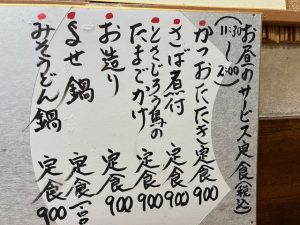 お昼のサービス定食(税込)
(11:30～2:00)
かつおたたき定食900
さば煮付 定食900
とさじろう鳥の
たまごかけ 定食900
お造り 定食900
よせ鍋 定食
みそうどん鍋 定食900